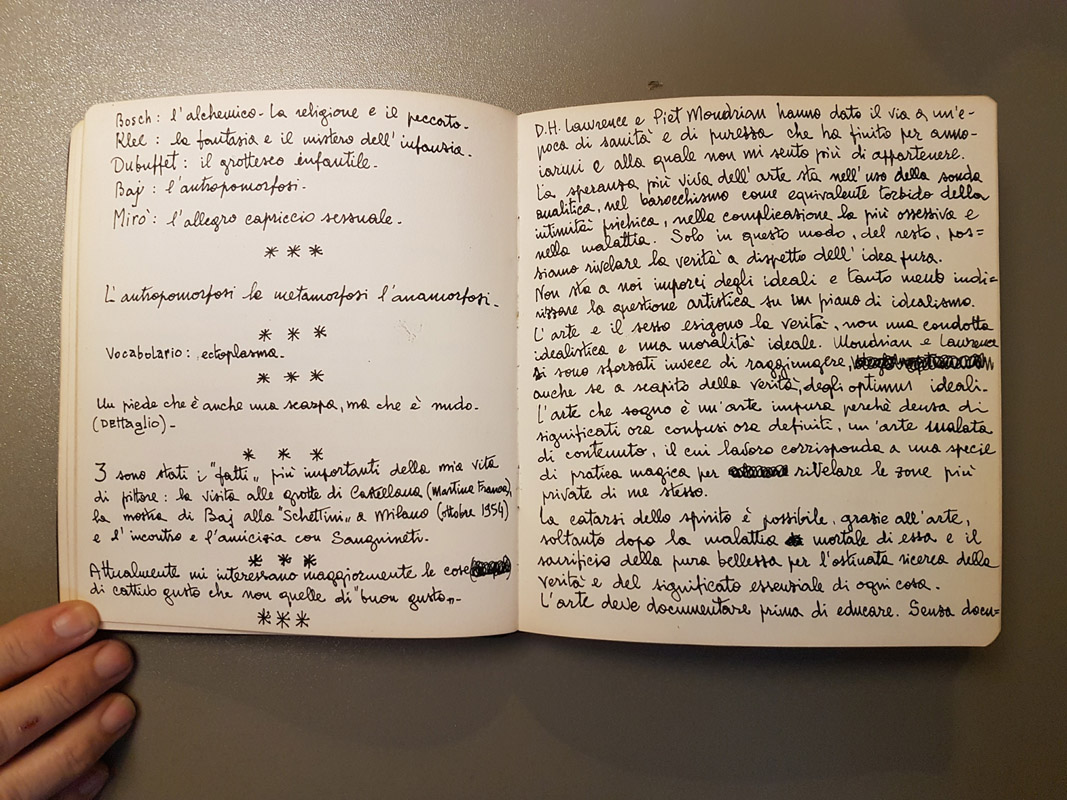 Bosch: l'alchemico. La religione e il peccato.
Klee: la fantasia e il mistero dell'infanzia.
Dubuffet: il grottesco infantile.
Baj: l'antropomorfosi.
Mirò: l'allegro capriccio sessuale.
***
L'antropomorfosi la metamorfosi l'anamorfosi.
***
Vocabolario: ectoplasma.
***
Un piede che è anche una scarpa, ma che è nudo.
(Dettaglio).
***
3 sono stati i "fatti" più importanti della mia vita
di pittore: la visita alle grotte di Castellana (Martina Franca),
la mostra di Baj alla "Schettini" a Milano (ottobre 1954)
e l'incontro e l'amicizia con Sanguineti.
***
Attualmente mi interessano maggiormente le cose
di cattivo gusto che non quelle di "buon gusto".
***
D.H. Lawrence e Piet Mondrian hanno dato il via a un'e-
poca di sanità e di purezza che ha finito per anno-
iarmi e alla quale non mi sento più di appartenere.
La speranza più viva dell'arte sta nell'uso della sonda
analitica, nel barocchismo come equivalente torbido della
intimità psichica, nella complicazione la più ossessiva e
nella malattia. Solo in questo modo, del resto, pos=
siamo rivelare la verità a dispetto dell'idea pura.
Non sta a noi imporci degli ideali e tanto meno indi=
rizzare la questione artistica su un piano di idealismo.
L'arte e il sesso esigono la verità, non una condotta
idealistica e una moralità ideale. Mondrian e Lawrence
si sono sforzati invece di raggiungere,
anche se a scapito della verità, degli optimus ideali.
L'arte che sogno è un'arte impura perchè densa di
significati ora confusi ora definiti, un'arte malata
di contenuto, il cui lavoro corrisponda a una specie
di pratica magica per rivelare le zone più
private di me stesso.
La catarsi dello spirito è possibile, grazie all'arte,
soltanto dopo la malattia mortale di essa e il
sacrificio della pura bellezza per l'ostinata ricerca della
verità e del significato essenziale di ogni cosa.
L'arte deve documentare prima di educare. Senza docu=